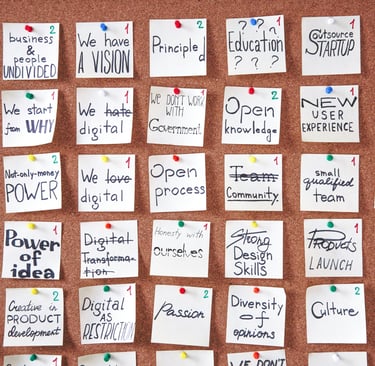 2
business
&
people
UNDIVIDED
1
We have
A VISION
2
Principled
1
? ? ?
Education
? ? ?
1
Outsource
STARTUP
1
We start
from WHY
1
We hate
digital
1
WE DON'T WORK
with
Government
2
Open
knowledge
1
NEW
USER
EXPERIENCE
2
Not-only-money
POWER
1
We love
digital
1
Open
process
1
Team
Community
1
small
qualified
team
1
Power
of
idea
1
Digital
Transforma-
tion
1
Honesty with
ourselves
1
Strong
Design
Skills
1
Products
LAUNCH
2
Creative in
PRODUCT
development
1
Digital
AS
RESTRICTION
2
Passion
1
Diversity
of
opinions
2
Culture
WE DON'T